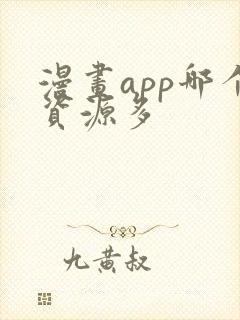 漫畫app哪个
資源多
九黄叔